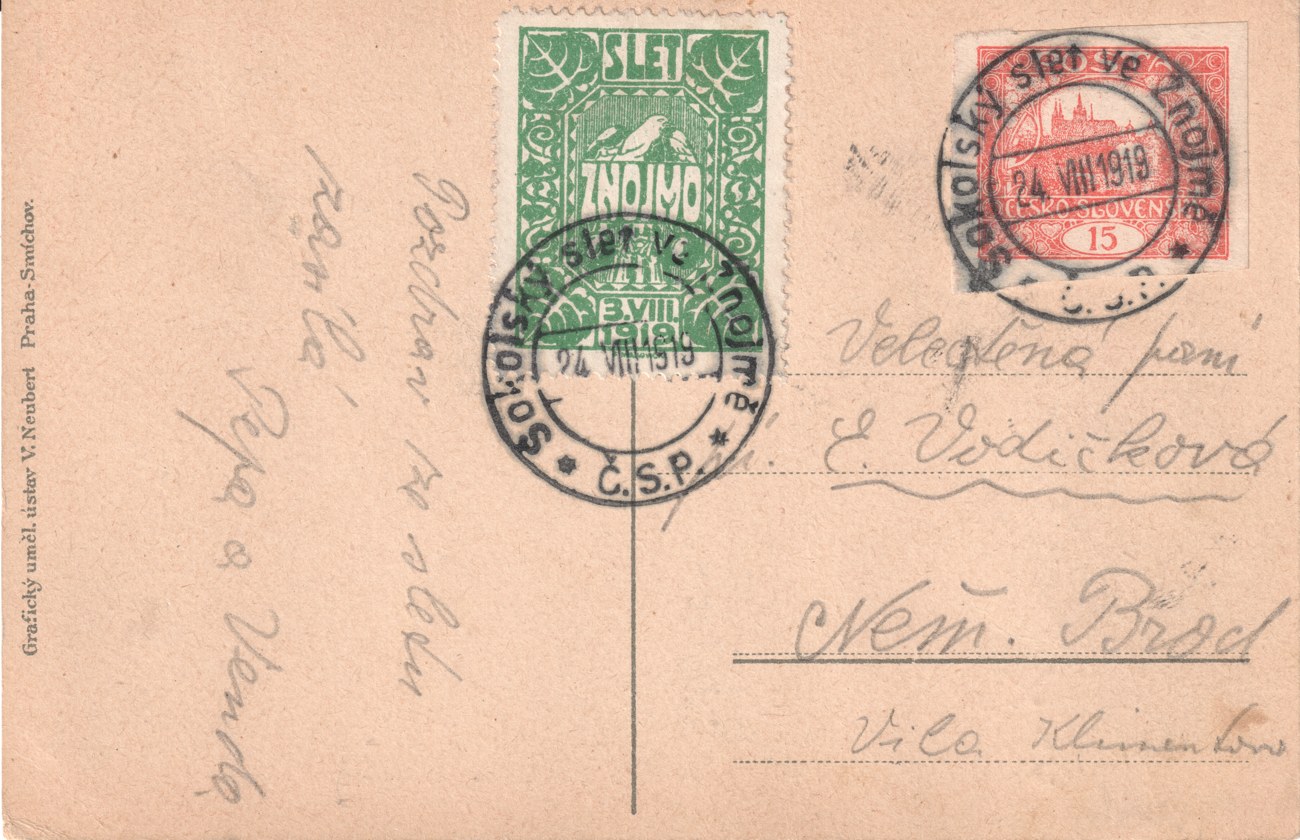 Grafický uměl. ústav V. Neubert Praha-Smíchov.
Pozdrav ze sletu
Pepa a Venda
SLET
ZNOJMO
3.VIII.
1919
Sokolský slet ve Znojmě
24. VIII 1919
Č.S.P.
ČESKO-SLOVENSKÁ
15
Sokolský slet ve Znojmě
24. VIII 1919
Č.S.P.
Velectěná paní
E. Vodičková
Něm. Brod
Vila Klimentova